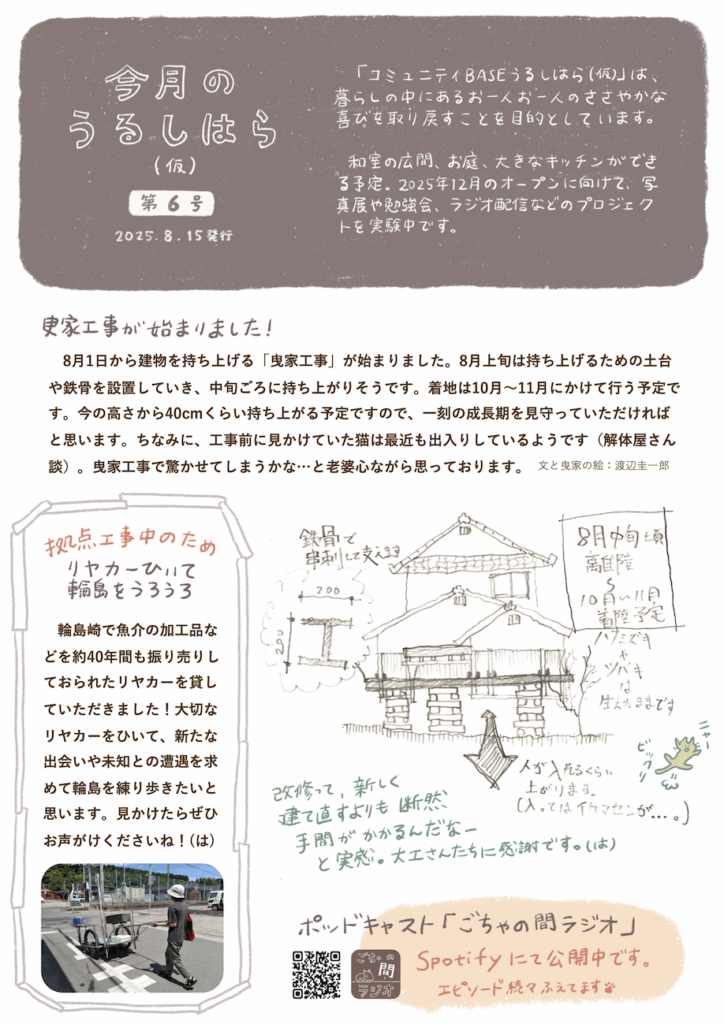 今月の
うるしはら
(仮)
第6号
2025.8.15発行
「コミュニティBASEうるしはら(仮)」は、
暮らしの中にあるお一人お一人のささやかな
喜びを取り戻すことを目的としています。
和室の広間、お庭、大きなキッチンができ
る予定。2025年12月のオープンに向けて、写
真展や勉強会、ラジオ配信などのプロジェク
トを実験中です。
曳家工事が始まりました!
8月1日から建物を持ち上げる「曳家工事」が始まりました。8月上旬は持ち上げるための土台
や鉄骨を設置していき、中旬ごろに持ち上がりそうです。着地は10月〜11月にかけて行う予定で
す。今の高さから40cmくらい持ち上がる予定ですので、一刻の成長期を見守っていただければ
と思います。ちなみに、工事前に見かけていた猫は最近も出入りしているようです（解体屋さん
談）。曳家工事で驚かせてしまうかな…と老婆心ながら思っております。 文と曳家の絵：渡辺圭一郎
拠点工事中のため
リヤカーひいて
輪島をうろうろ
輪島崎で魚介の加工品な
どを約40年間も振り売りし
ておられたリヤカーを貸し
ていただきました！大切な
リヤカーをひいて、新たな
出会いや未知との遭遇を求
めて輪島を練り歩きたいと
思います。見かけたらぜひ
お声がけくださいね！(は)
鉄骨で
串刺して支えます
200
200
8月中旬頃
離陸
〜
10月い11月
着陸予定
ハナミズキ
や
ツバキ
は
生えたままです
ニャー
ビックリ
人が入れるくらい
上がります。
(入ってはイケマセンが…。)
改修って、新しく
建て直すよりも断然、
手間がかかるんだなー
と実感。大工さんたちに感謝です。(は)
ポッドキャスト「ごちゃの間ラジオ」
ごちゃの
間
ラジオ
Spotifyにて公開中です。
エピソード続々ふえてます